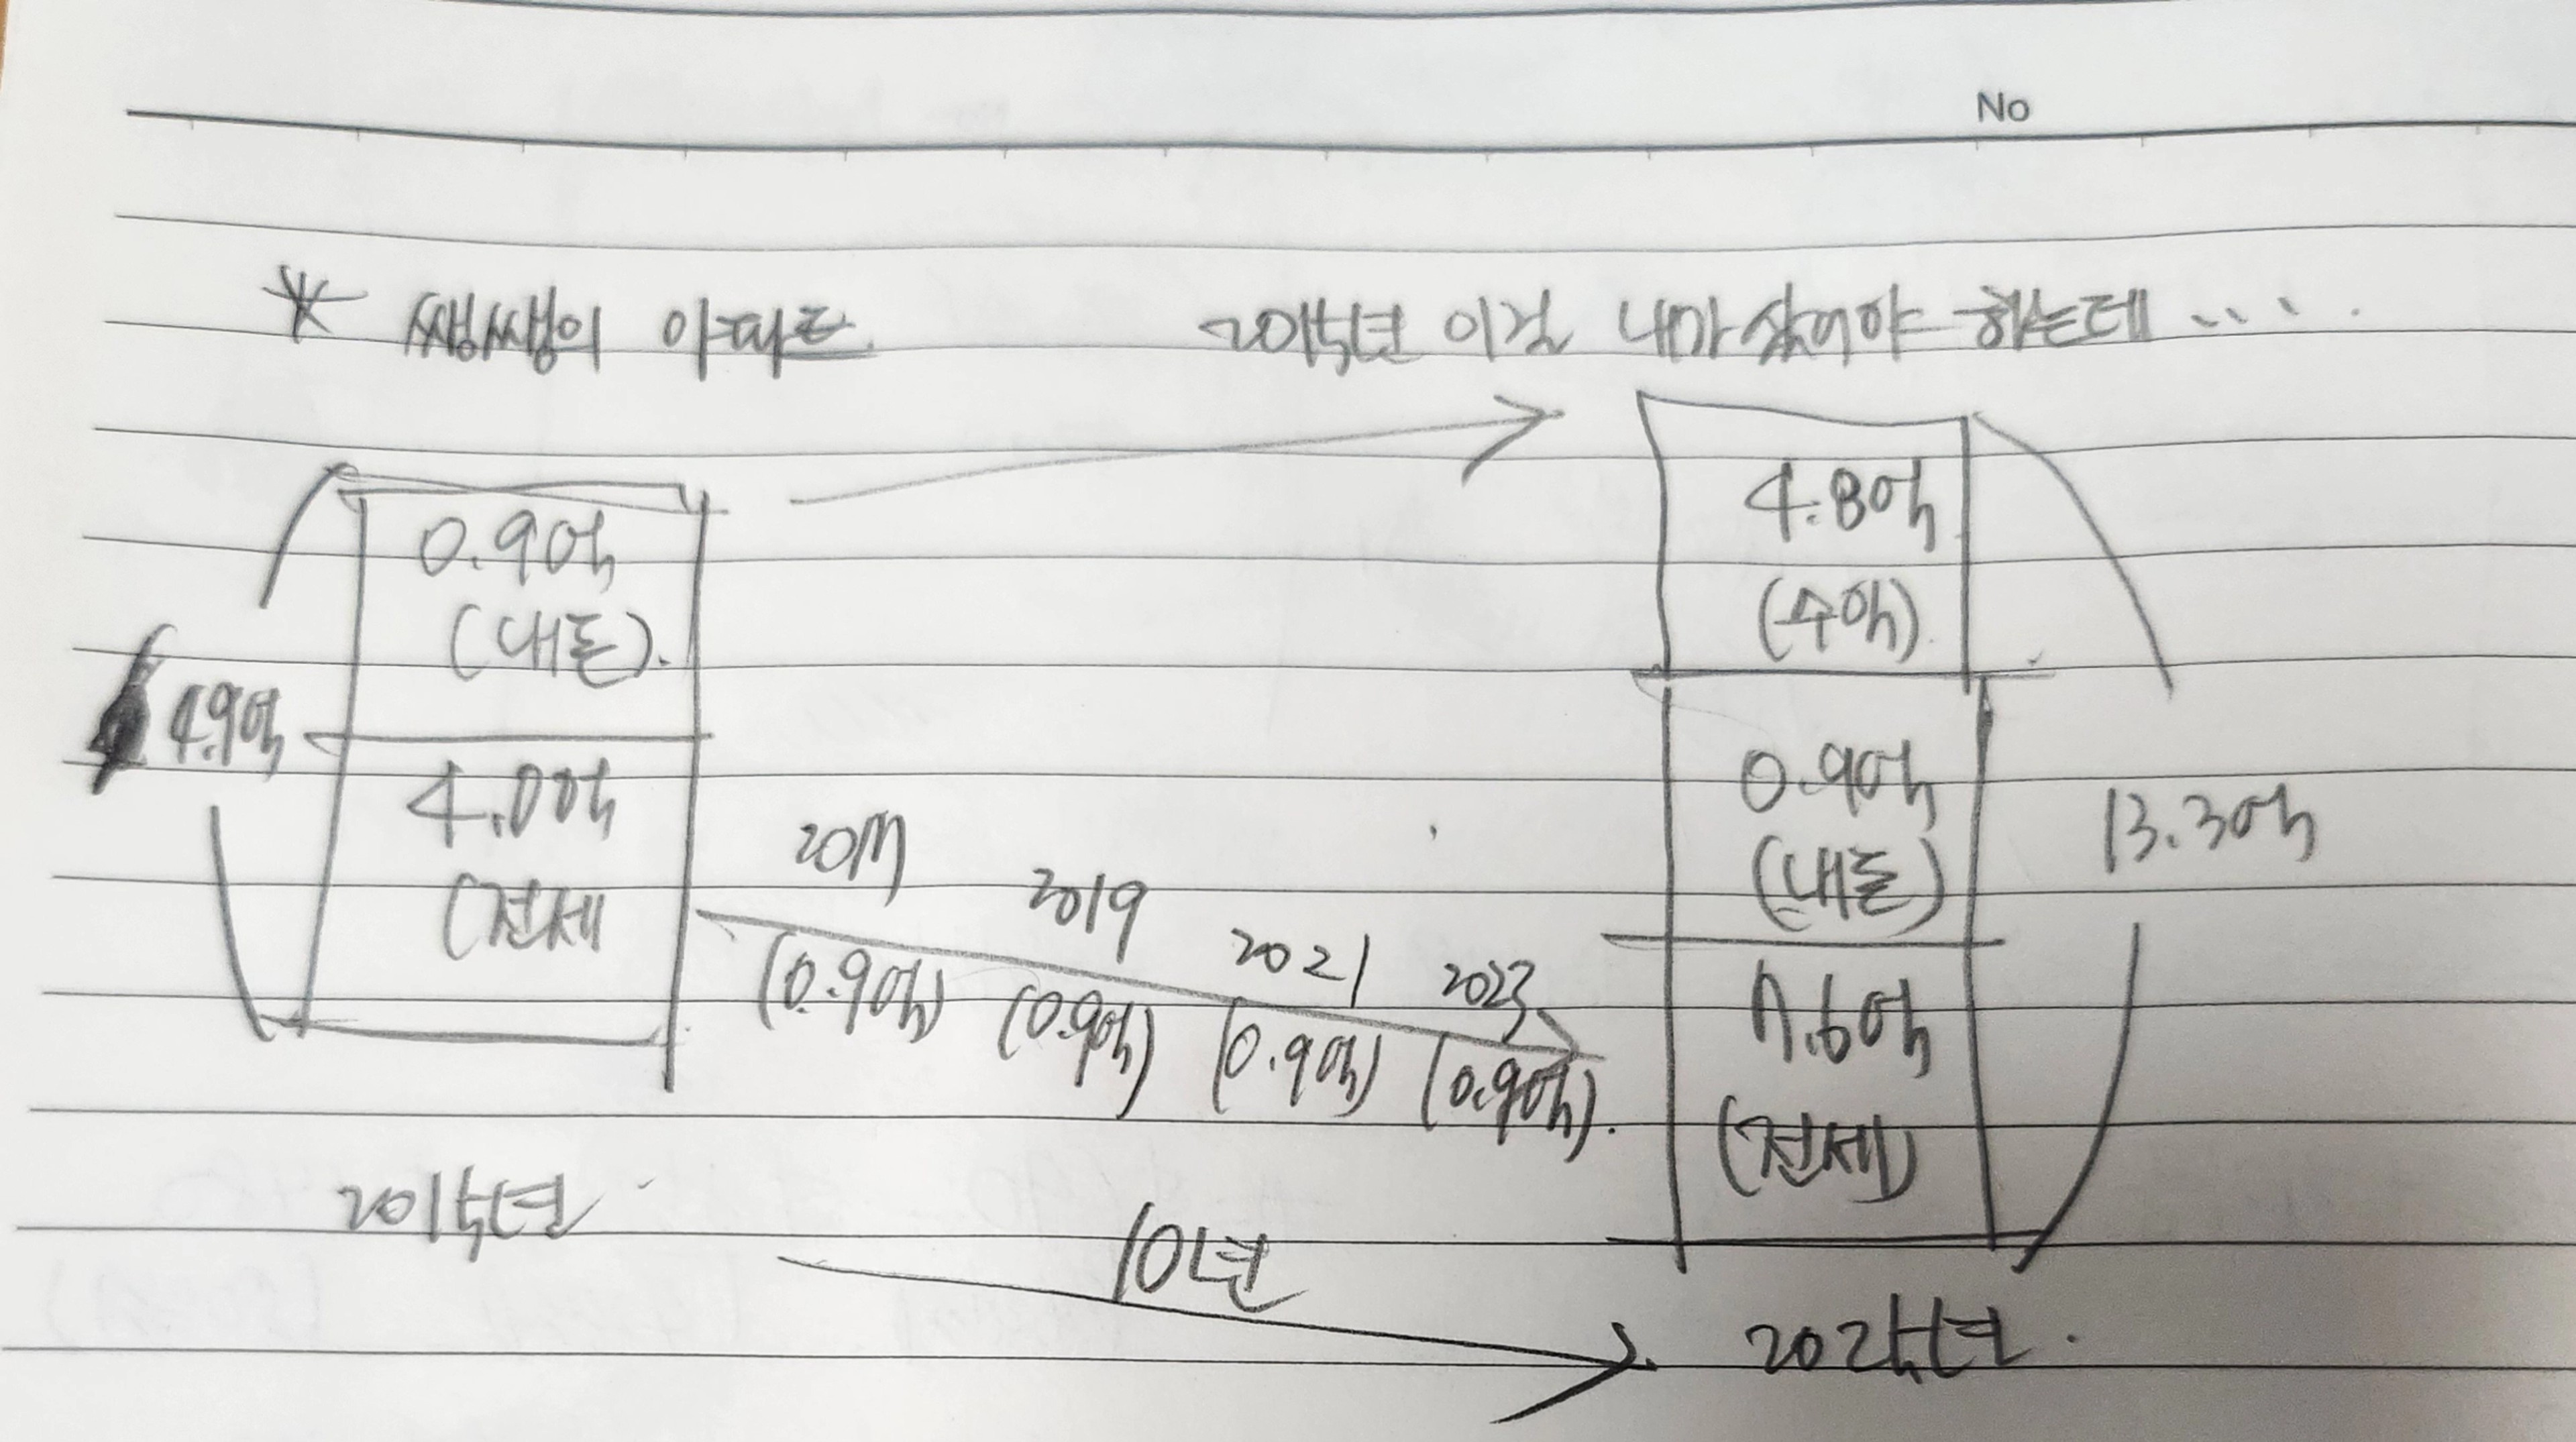 No
* 쌩쌩의 아파트
2015년 이걸 내가 샀어야 하는데....
0.9억
(내돈).
4.9억
4.0억
(전세
2017
2019
2021
2023
(0.9억)
(0.9억)
(0.9억)
(0.9억).
4.8억
(수익)
0.9억
(내돈)
7.6억
(전세)
13.3억
2015년
10년
2025년.